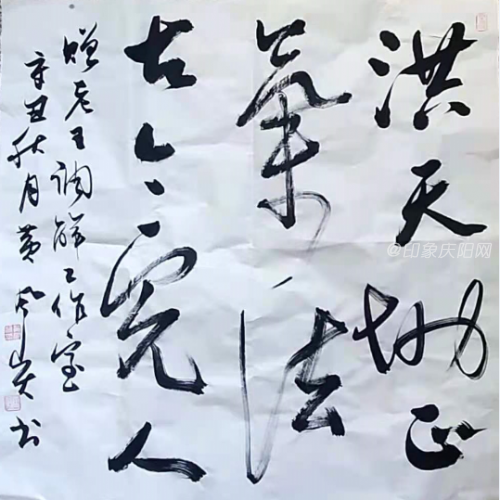 洪天地正
氣法
古今完人
赠老王调解工作室
辛丑秋月黄书
@印象庆阳网